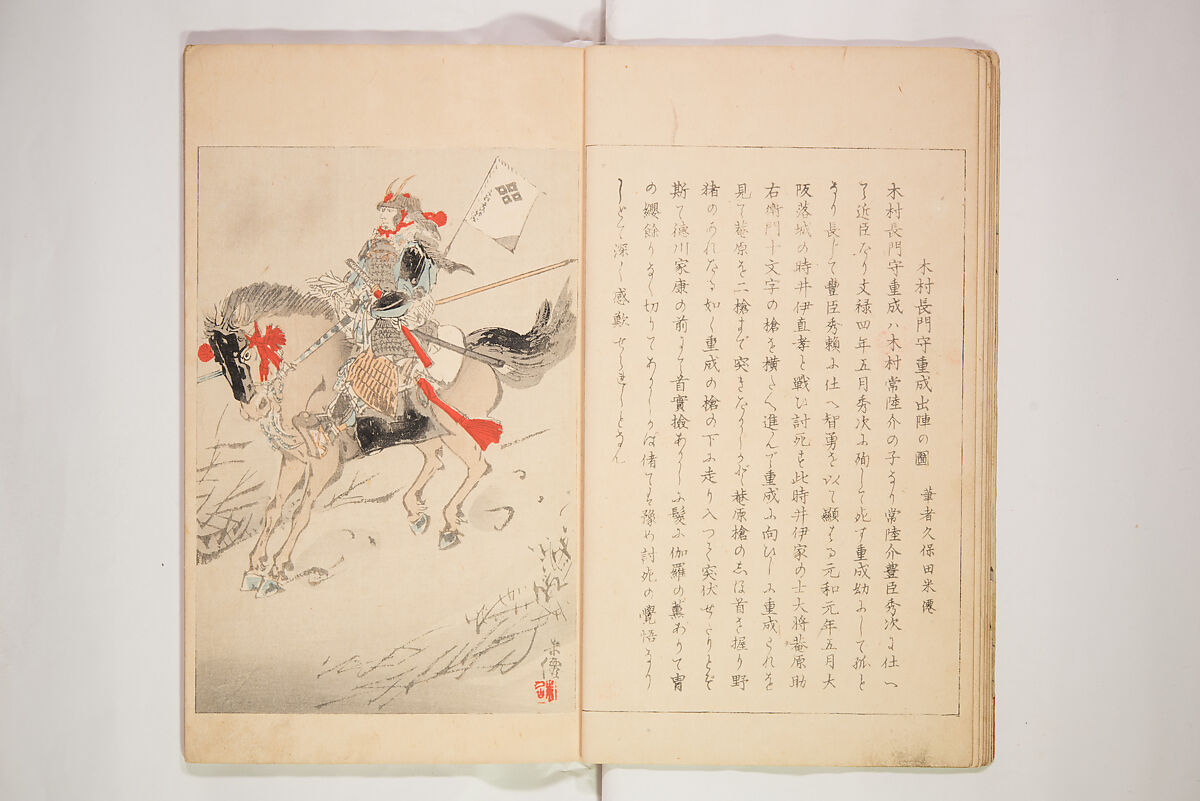 木村長門守重成出陣の圖　筆者久保田米僊
木村長門守重成ハ木村常陸介の子なり常陸介豊臣秀次に仕へ
て近臣たり文禄四年五月秀次に殉して死す重成幼にして孤と
なり長じて豊臣秀頼に仕へ智勇を以て顕はる元和元年五月大
阪落城の時井伊直孝と戦ひ討死す此時井伊家の士大将菴原助
右衛門十文字の槍を横たへ進んで重成に向ひしに重成これを
見て菴原を二槍まで突きたりしが菴原槍のしほ首を握り野
猪のあれたる如く重成の槍の下に走り入つて突伏せたりとぞ
斯て徳川家康の前にて首實撿ありしに髪に伽羅の薫ありて冑
の纓餘りなく切りてありしかば偖ても豫め討死の覺悟なり
しとて深く感歎せられしとなん
米僊